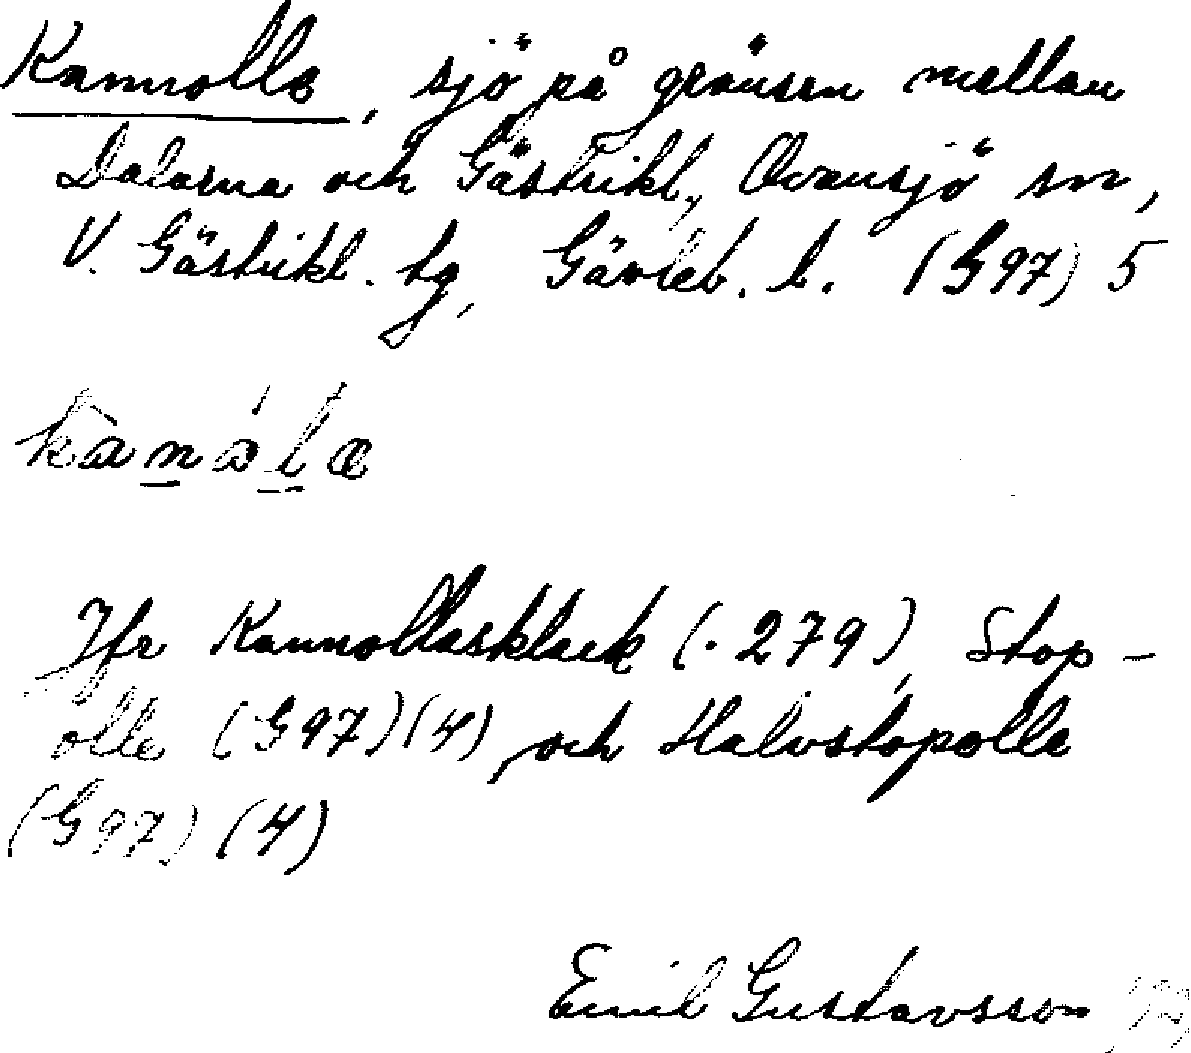 Kannolla, sjö på gränsen mellan
Dalarna och Gästrikl., Ovansjö sn,
V. Gästrikl. tg, Gävleb. l. (G97) 5
kanåla
Jfr Kannollasklack (.279), Stop-
olle (G97)(4) och Halvstopolle
(G97) (4)
Emil Gustavsson